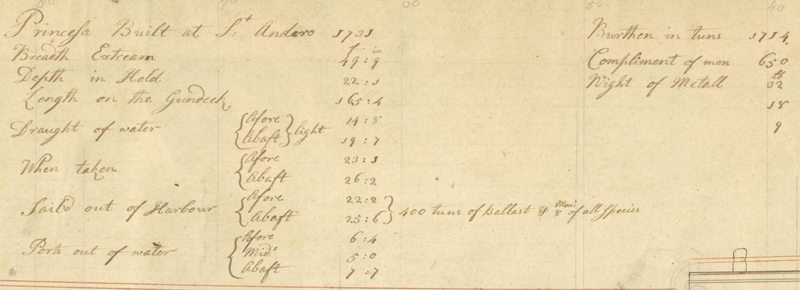 Princesa Built at St Andero 1731 Burthen in tuns 1714
Breadth Extream 49 f : 9 in Compliment of men 650
Depth in Hold 22 : 1 Wight of Metall 32 lb
Length on the Gundeck 165 : 4 18
Draught of water { Afore 14 : 8 9
{ Abaft } light 19 : 7
When taken { Afore 23 : 1
{ Abaft 26 : 2
Saild out of Harbour { Afore 22 : 2
{ Abaft 25 : 6 } 400 tuns of Ballast & 5 of all Species
Ports out of water { Afore 6 : 4
{ Mid 5 : 0
{ Abaft 7 : 7